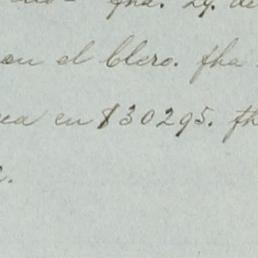 fha. 29. de
on el Clero. fha
ea en $30295. fh